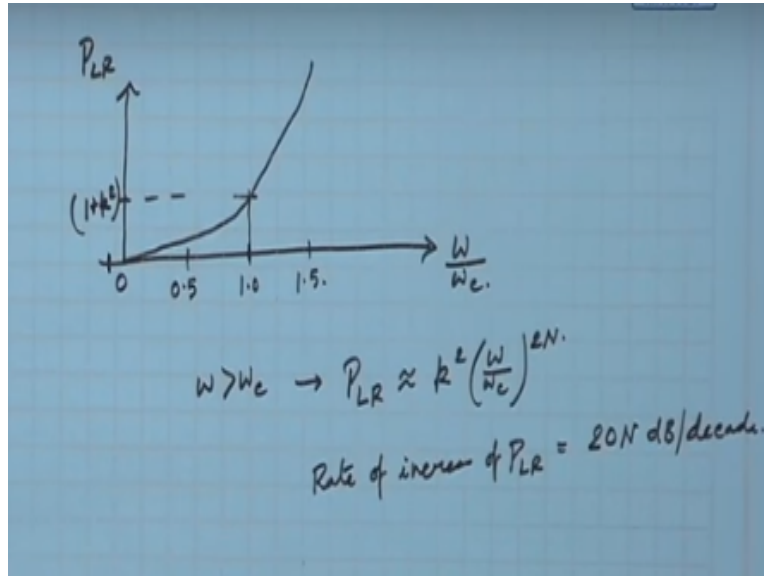 P_LR
(1+k²)
0 0.5 1.0 1.5.
ω/ω_c.
ω>ω_c → P_LR ≈ k² (ω/ω_c)^2N.
Rate of increas of P_LR = 20N dB/decade.